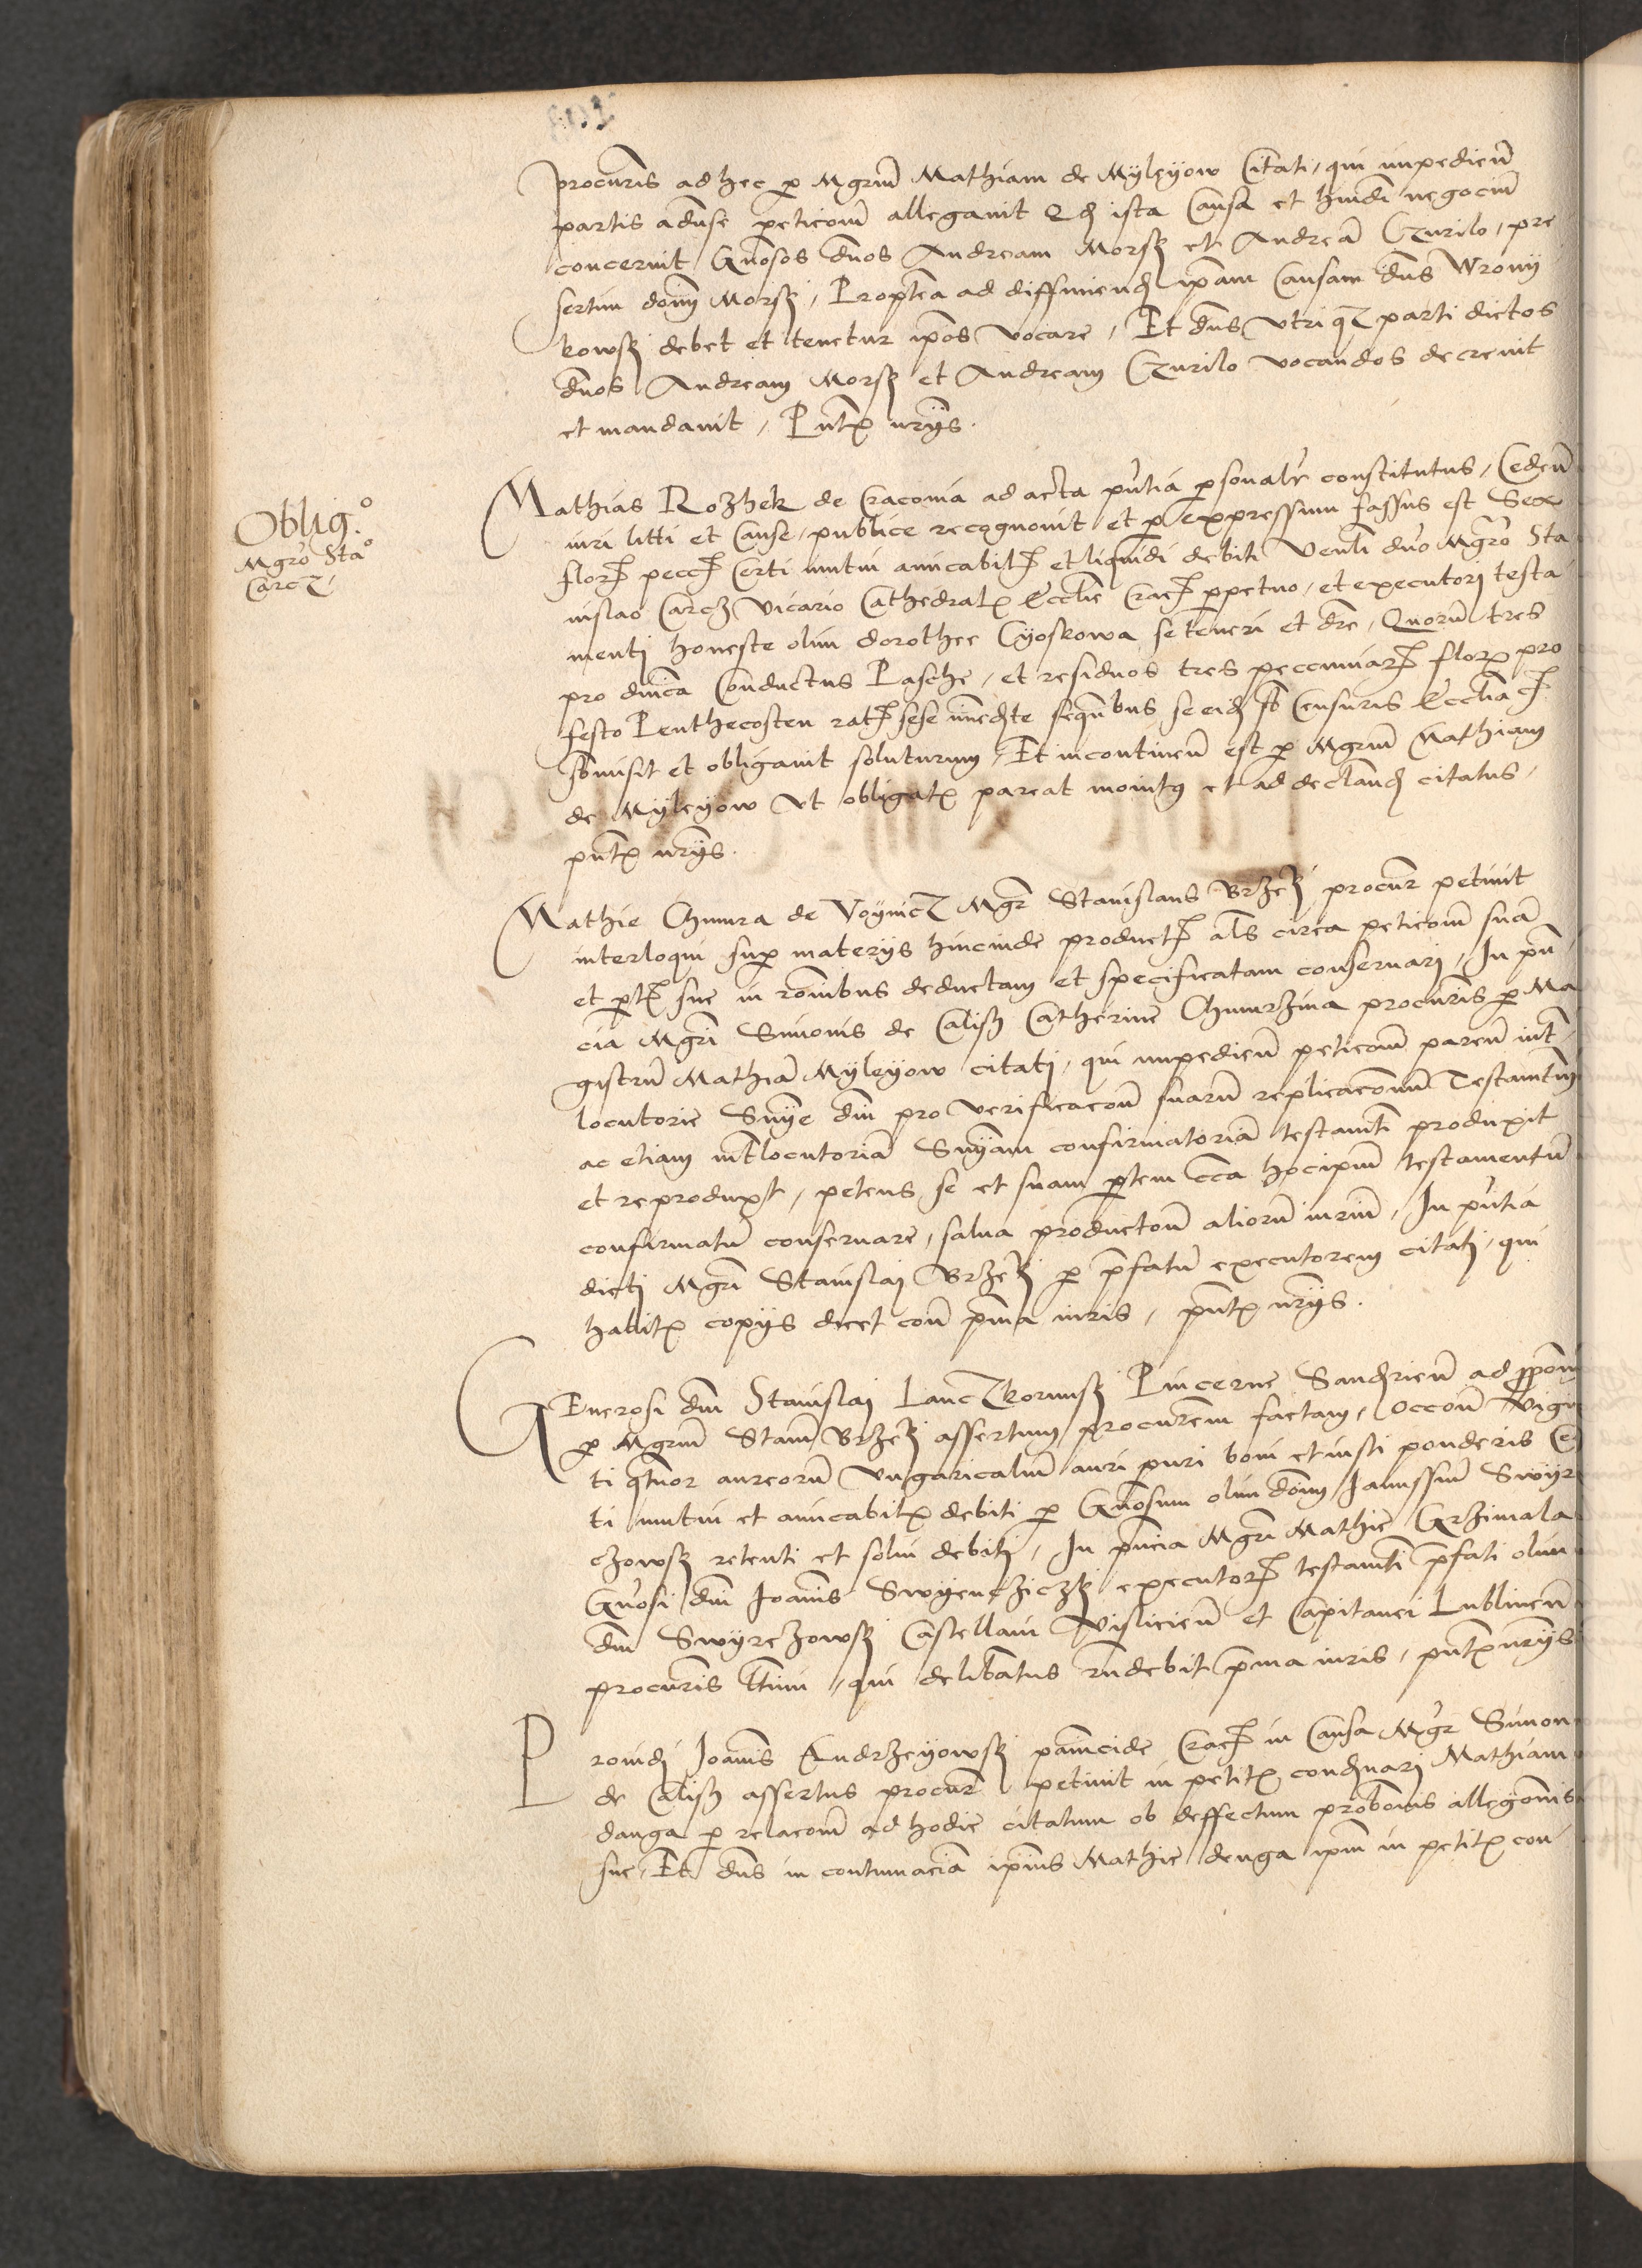 procuris ad hec p Mgrum Mathiam de Mylyow Citati, qui impedien
partis aduse peticom allegauit Qd ista Causa et huiusdi negociu
concernit Gnosos dnos Andream Morsky et Andrea Czurilo, pre
sertim dnm Morsky, Proptea ad diffiniend ipam Causam dns Wrony
kowsky debet et tenetur ipos vocare, Et dns vtriqz parti dictos
dnos Andream Morsky et Andream Czurilo vocandos decreuit
et mandauit, Pntx nrijs.
Oblig.o
Mgro Stao
Carcz
Mathias Rozhek de Cracouia ad acta pntia psonalr constitutus, Ceden
iuri litti et Cause, publice recognouit et p expressum fassus est Sex
flor pecc Certi mutui amicabil et liquidi debiti Venli dno Mgro Sta
nislao Carcz Vicario Cathedral Ecclie Crac ppetuo, et executori testa
menti honeste olim dorothee Cyoskowa se teneri et dre, Quoru tres
pro dnica Conductus Pasche, et residuos tres peccuniar flor pro
festo Penthecosten rat sese imedte sequnbus se eid sb Censuris Ecclia
sbmisit et obligauit soluturum, Et incontinen est p Mgrum Mathiam
de Mylyow vt obligat pareat monitus et ad declarand citatus,
pntx nrijs.
Mathie Chmura de Voynicz Mgr Stanislaus Brzesky procur petiuit
interloqui sup materijs hincinde product als circa peticom sua
et ptis sue in ronibus deductam et specificatam conseruari, In pn
cia Mgri Simonis de Calisch Catherine Chmurzina procuris p Ma
gistru Mathia Mylyow citati, qui impedien peticom paren int
locutorie Snie dni pro verificacom suaru replicaconum Testamtum
ac etiam intlocutoria Sniam confirmatoria testamti produxit
et reproduxit, petens se et suam ptem cca hoc ipm testamentu
confirmatu conseruare, salua productom alioru iurium, In pntia
dicti Mgri Stanislai Brzesky p pfatu executorem citati, qui
habitx copijs dicet con pma iuris, pntx nrijs.
GEnerosi dni Stanislai Lanczkorunsky Pincerne Sandrien ad ppom
p Mgrum Stanm Brzesky assertum procurem factam, occom Vigin
ti qtuor aureoru Vngaricaliu auri puri boni et iusti ponderis Cer
ti mutui et amicabilx debiti p Gnosum olim dnm Janussiu Swyr
czowsky retenti et solui debiti, In pncia Mgri Mathie Grzimala
Gnosi dni Joanis Swyenczizky executor testamti pfati olim
dni Swyrczowsky Castellani Vislicien et Capitanei Lublinen
procuris ttimi, qui delibatus rndebit pma iuris, pntx nrijs
Prouidi Joanis Andrzeyowsky panicide Crac in Causa Mgr Simon
de Calisch assertus procur petiuit in petitx condnari Mathiam
danga p relacom ad hodie citatum ob deffectum probonis allegonis
sue, Et dns in contumacia ipius Mathie denga ipm in petitx con